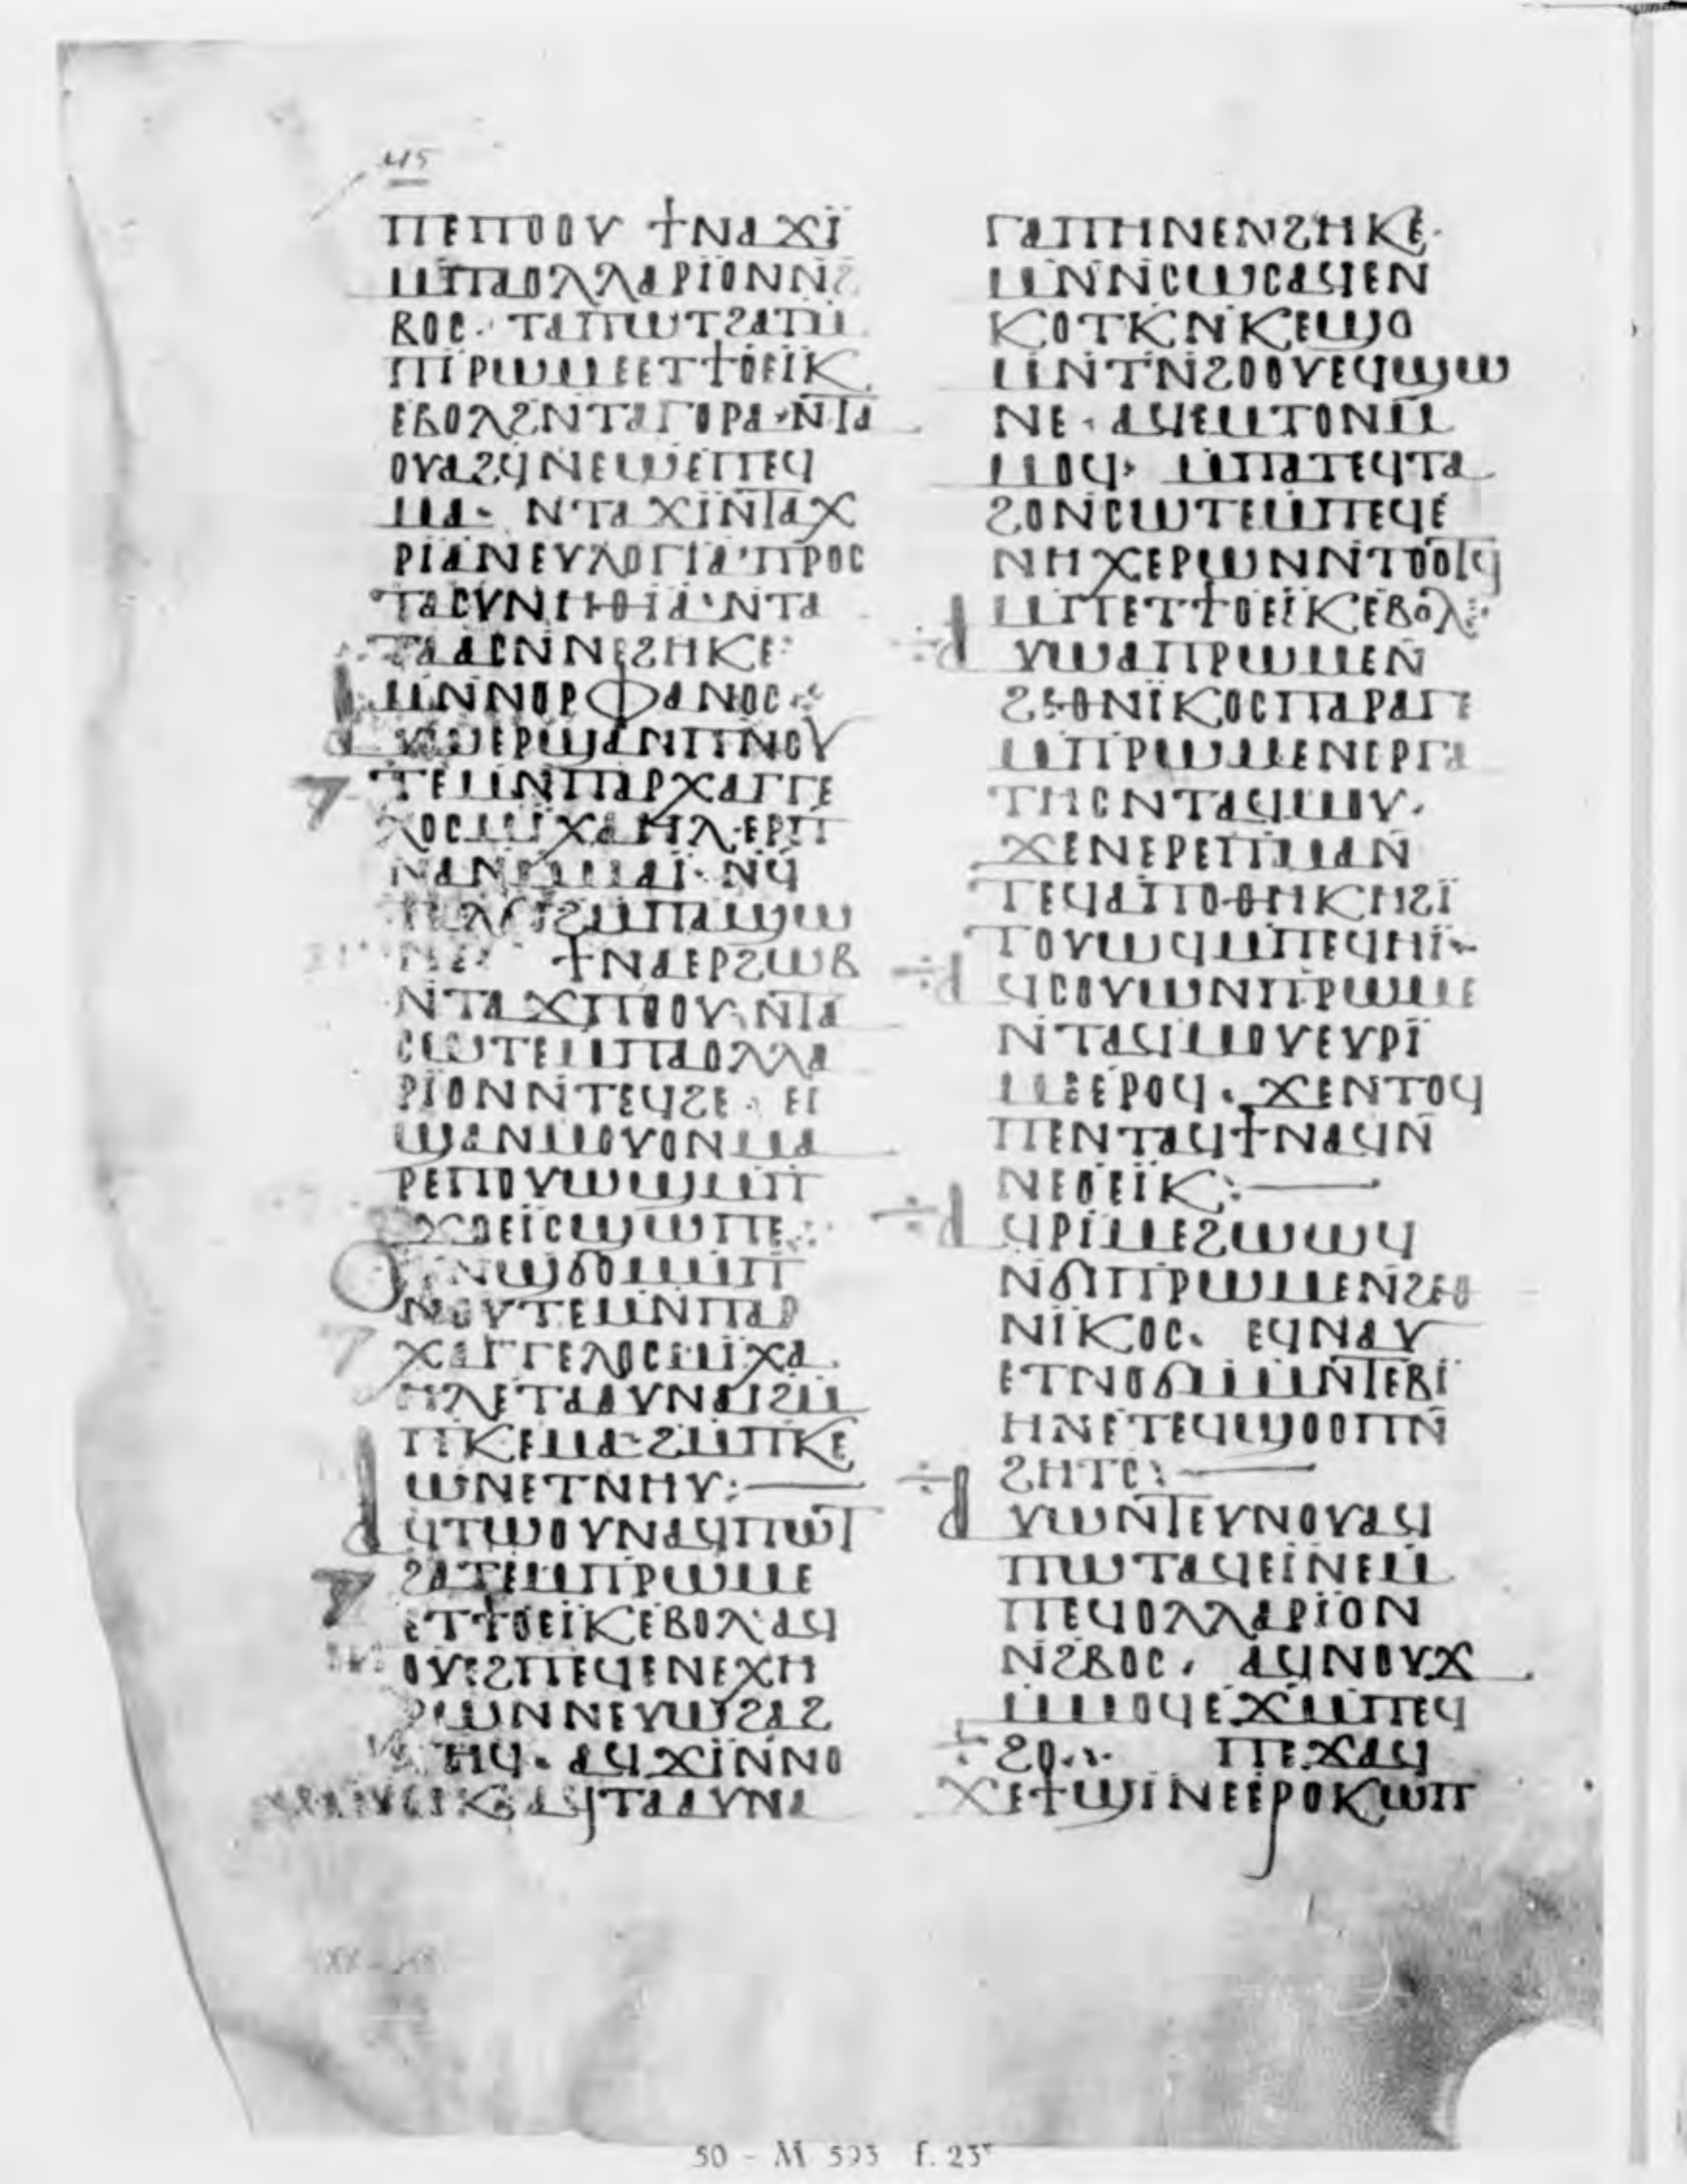 45
ⲡⲉⲡⲟⲟⲩ ϯⲛⲁϫⲓ̈
ⲙ̄ⲡⲁⲟⲗⲗⲁⲣⲓⲟⲛⲛ̄ϩ
ⲃⲟⲥ· ⲧⲁⲡⲱⲧϩⲁⲧⲙ̄
ⲡⲓⲣⲱⲙⲉⲉⲧϯⲟⲉⲓⲕ
ⲉⲃⲟⲗϩⲛⲧⲁⲅⲟⲣⲁ·ⲛ̄ⲧⲁ
ⲟⲩⲁϩϥⲛⲉⲱⲉⲡⲉϥ
ⲙⲁ· ⲛⲧⲁϫⲓⲛ̄ⲧⲁⲭ
ⲣⲓⲁⲛⲉⲩⲗⲟⲅⲓⲁ·ⲡⲣⲟⲥ
ⲧⲁⲥⲩⲛⲏⲑⲓⲁ·ⲛⲧⲁ
ⲧⲁⲁⲥⲛ̄ⲛⲉϩⲏⲕⲉ
ⲙⲛ̄ⲛⲟⲣⲫⲁⲛⲟⲥ
ⲁⲩⲱⲉⲣϣⲁⲛⲡⲛⲟⲩ
ⲧⲉⲙⲛ̄ⲡⲁⲣⲭⲁⲅⲅⲉ
ⲗⲟⲥⲙⲓⲭⲁⲏⲗ·ⲉⲣⲡ
ⲛⲁⲛⲙⲙⲁⲓ· ⲛϥ
ϩⲙ̄ⲡⲁϣⲱ
ⲛⲉ ϯⲛⲁⲉⲣϩⲱⲃ
ⲛⲧⲁϫⲡⲟⲟⲩ·ⲛ̄ⲧⲁ
ⲥⲱⲧⲉⲙ̄ⲡⲁⲟⲗⲗⲁ
ⲣⲓⲟⲛⲛ̄ⲧⲉϥϩⲉ· ⲉⲓ
ϣⲁⲛⲙⲟⲩⲟⲛⲙⲁ
ⲣⲉⲡⲟⲩⲱϣⲙ̄ⲡ
ϫⲟⲉⲓⲥϣⲱⲡⲉ
ⲟⲩⲛϣϭⲟⲙⲙ̄ⲡ
ⲛⲟⲩⲧⲉⲙⲛ̄ⲡⲁⲣ
ⲭⲁⲅⲅⲉⲗⲟⲥⲙⲓ̈ⲭⲁ
ⲏⲗⲉⲧⲁⲁⲩⲛⲁⲓϩⲙ̄
ⲡⲕⲉⲙⲁ·ϩⲙ̄ⲡⲕⲉ
ⲱⲛⲉⲧⲛⲏⲩ:
ⲁϥⲧⲱⲟⲩⲛⲁϥⲡⲱⲧ
ϩⲁⲧⲉⲙ̄ⲡⲣⲱⲙⲉ
ⲉⲧϯⲟⲉⲓⲕⲉⲃⲟⲗ·ⲁϥ
ⲟⲩⲉϩⲡⲉϥⲉⲛⲉⲭⲏ
ⲣⲱⲛⲛⲉⲩⲱϩⲁϩ
ⲧⲏϥ· ⲁϥϫⲓⲛ̄ⲛⲟ
ⲁϥⲧⲁⲁⲩⲛⲁ
ⲅⲁⲡⲏⲛⲉⲛϩⲏⲕⲉ·
ⲙⲛ̄ⲛ̄ⲥⲱⲥⲁϥⲉⲛ
ⲕⲟⲧⲕⲛⲕⲉϣⲟ
ⲙⲛ̄ⲧⲛ̄ϩⲟⲟⲩⲉϥϣⲱ
ⲛⲉ· ⲁϥⲉⲙⲧⲟⲛⲙ̄
ⲙⲟϥ· ⲙ̄ⲡⲁⲧⲉϥⲧⲁ
ϩⲟⲛⲥⲱⲧⲉⲙ̄ⲡⲉϥⲉ
ⲛⲏⲭⲉⲣⲱⲛⲛ̄ⲧⲟⲟⲧϥ
ⲙ̄ⲡⲉⲧϯⲟⲉⲓⲕⲉⲃⲟⲗ:
ⲁⲩⲱⲁⲡⲣⲱⲙⲉⲛ̄
ϩⲉⲑⲛⲓ̈ⲕⲟⲥⲡⲁⲣⲁⲅⲉ
ⲙ̄ⲡⲣⲱⲙⲉⲛⲉⲣⲅⲁ
ⲧⲏⲥⲛⲧⲁϥⲙⲟⲩ·
ϫⲉⲛⲉⲣⲉⲡⲙⲁⲛ̄
ⲧⲉϥⲁⲡⲟⲑⲏⲕⲏϩⲓ̈
ⲧⲟⲩⲱϥⲙ̄ⲡⲉϥⲏⲓ̈
ⲁϥⲥⲟⲩⲱⲛⲡⲣⲱⲙⲉ
ⲛ̄ⲧⲁϥⲙⲟⲩⲉⲩⲣⲓ̈
ⲙⲉⲉⲣⲟϥ· ϫⲉⲛⲧⲟϥ
ⲡⲉⲛⲧⲁϥϯⲛⲁϥⲛ̄
ⲛⲉⲟⲉⲓ̈ⲕ:
ⲁϥⲣⲓⲙⲉϩⲱⲱϥ
ⲛ̄ϭⲓⲡⲣⲱⲙⲉⲛ̄ϩⲉⲑ
ⲛⲓ̈ⲕⲟⲥ· ⲉϥⲛⲁⲩ
ⲉⲧⲛⲟϭⲙ̄ⲙⲛ̄ⲧⲉⲃⲓ
ⲏⲛⲉⲧⲉϥϣⲟⲟⲡⲛ̄
ϩⲏⲧⲥ:
ⲁⲩⲱⲛ̄ⲧⲉⲩⲛⲟⲩⲁϥ
ⲡⲱⲧⲁϥⲉⲓⲛⲉⲙ̄
ⲡⲉϥⲟⲗⲗⲁⲣⲓⲟⲛ
ⲛ̄ϩⲃⲟⲥ· ⲁϥⲛⲟⲩϫ
ⲙ̄ⲙⲟϥⲉϫⲙ̄ⲡⲉϥ
ϩⲟ· ⲡⲉϫⲁϥ
ϫⲉϯϣⲓⲛⲉⲉⲣⲟⲕⲱⲡ
50 - M 593 f. 23ʳ